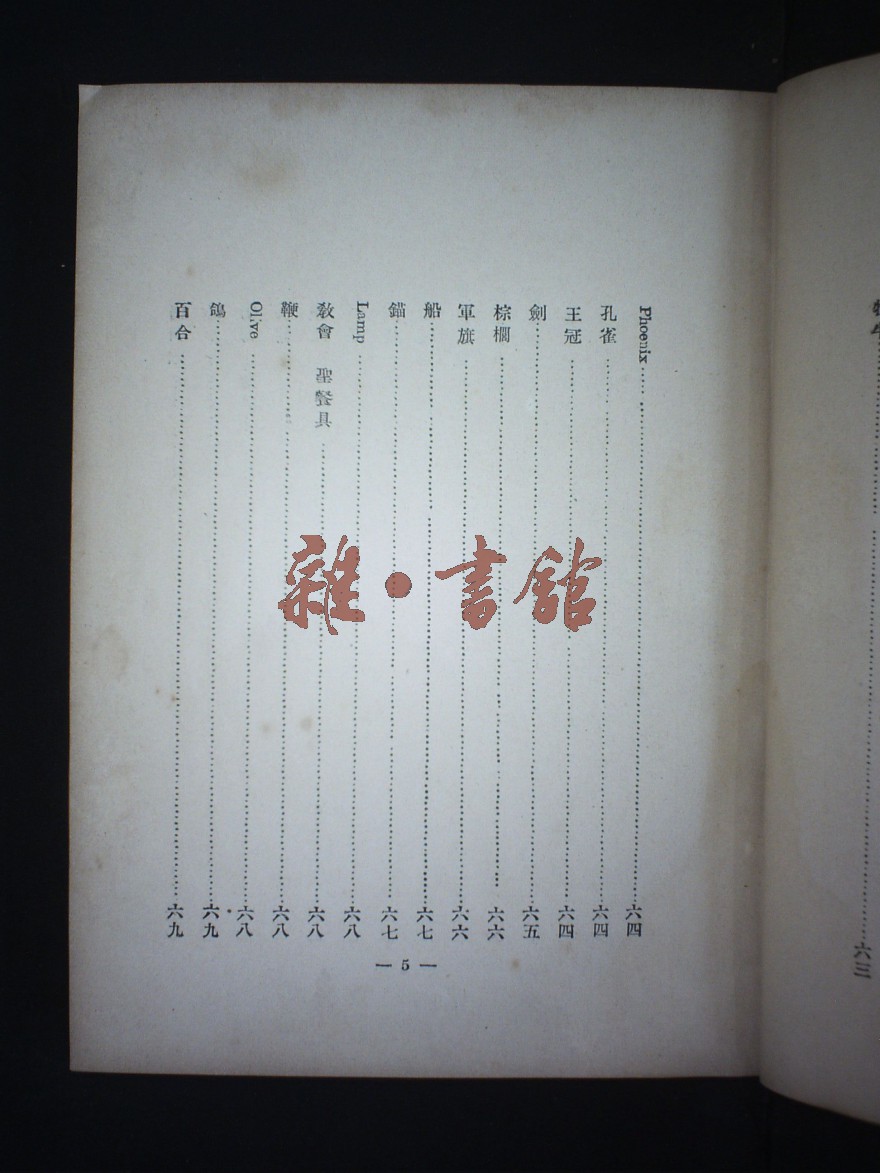 Phoenix……六四
孔雀……六四
王冠……六四
劍……六五
棕櫚……六六
軍旗……六六
船……六七
錨……六七
Lamp……六八
教會 聖餐具……六八
鞭……六八
Olive……六八
鴿……六九
百合……六九
— 5 —
雜·書館
六三